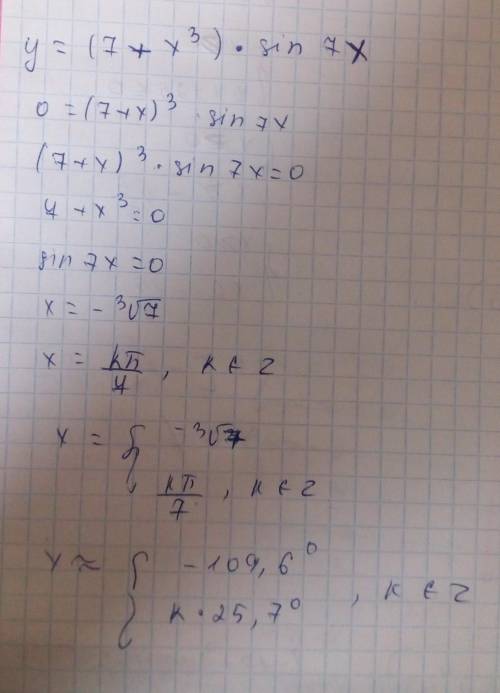 y = (7 + x³) · sin 7x
0 = (7+x)³ · sin 7x
(7+x)³ · sin 7x = 0
7 + x³ = 0
sin 7x = 0
x = - ³√7
x = kπ/7 , k ∈ Z
x = { - ³√7
kπ/7 , k ∈ Z
x ≈ { - 109,6⁰
k · 25,7⁰ , k ∈ Z